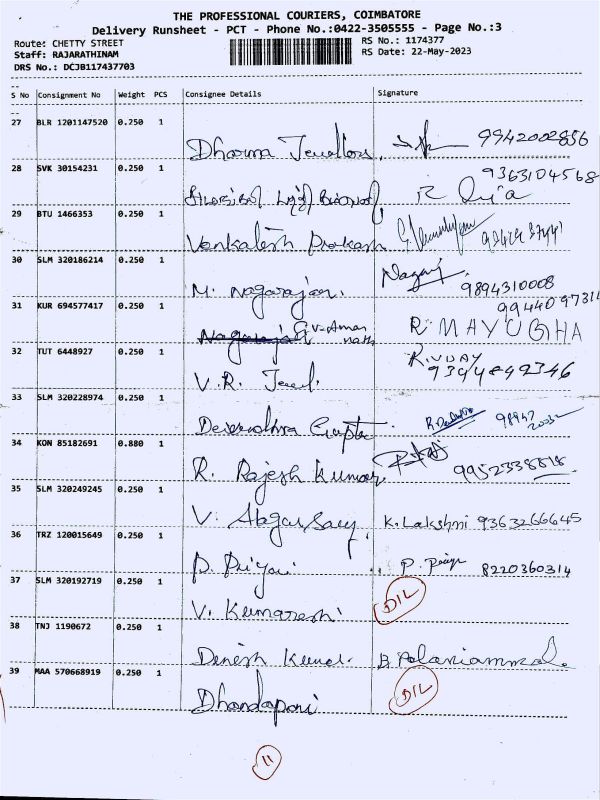 THE PROFESSIONAL COURIERS, COIMBATORE
Delivery Runsheet - PCT - Phone No.:0422-3505555 - Page No.:3
Route: CHETTY STREET RS No.: 1174377
Staff: RAJARATHINAM RS Date: 22-May-2023
DRS No.: DCJB117437703
S No Consignment No Weight PCS Consignee Details Signature
27 BLR 1201147520 0.250 1 Dharma Jewellors. 9942002856
28 SVK 30154231 0.250 1 9363104568
29 BTU 1466353 0.250 1 Venkatesh Prakash
30 SLM 320186214 0.250 1 M. Nagarajan. Nagaraj 9894310008
31 KUR 694577417 0.250 1 V. Amar nath R. MAYUGHA
32 TUT 6448927 0.250 1 V.R. Jewel. R. UDAY
33 SLM 320228974 0.250 1 Devendhra Gupta
34 KON 85182691 0.880 1 R. Rajesh Kumar
35 SLM 320249245 0.250 1 V. K. Lakshmi 9363266645
36 TRZ 120015649 0.250 1 P. Priya 8220360314
37 SLM 320192719 0.250 1 V. Kumaresh DIL
38 TNJ 1190672 0.250 1 Dinesh Kumar. B. Palaniammal
39 MAA 570668919 0.250 1 Dhandapani DIL
11